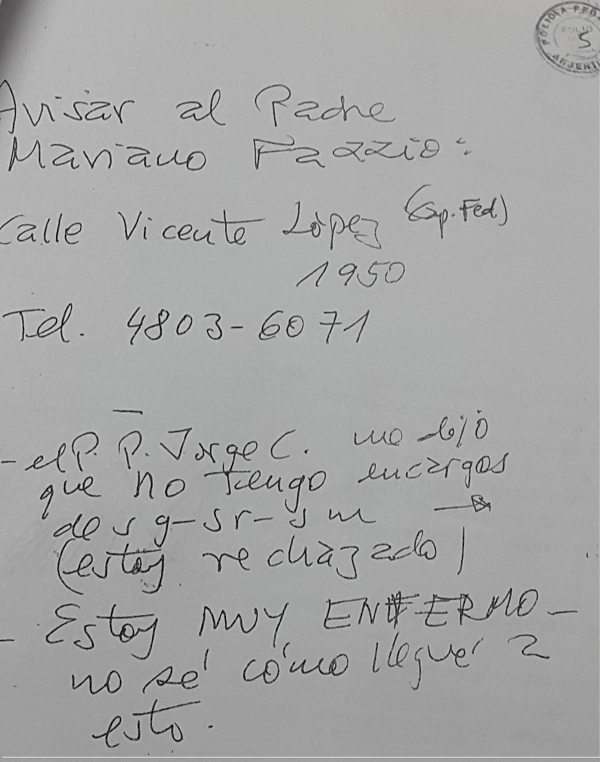 Avisar al Padre
Mariano Fazzio:
Calle Vicente López (Cap. Fed)
1950
Tel. 4803-6071
- el P. P. Jorge C. me dijo
que no tengo encargos
de sg-sr-sm →
(estoy rechazado)
- Estoy MUY ENFERMO -
no sé cómo llegué a
esto.
POLICIA FED
5
ARGENTI